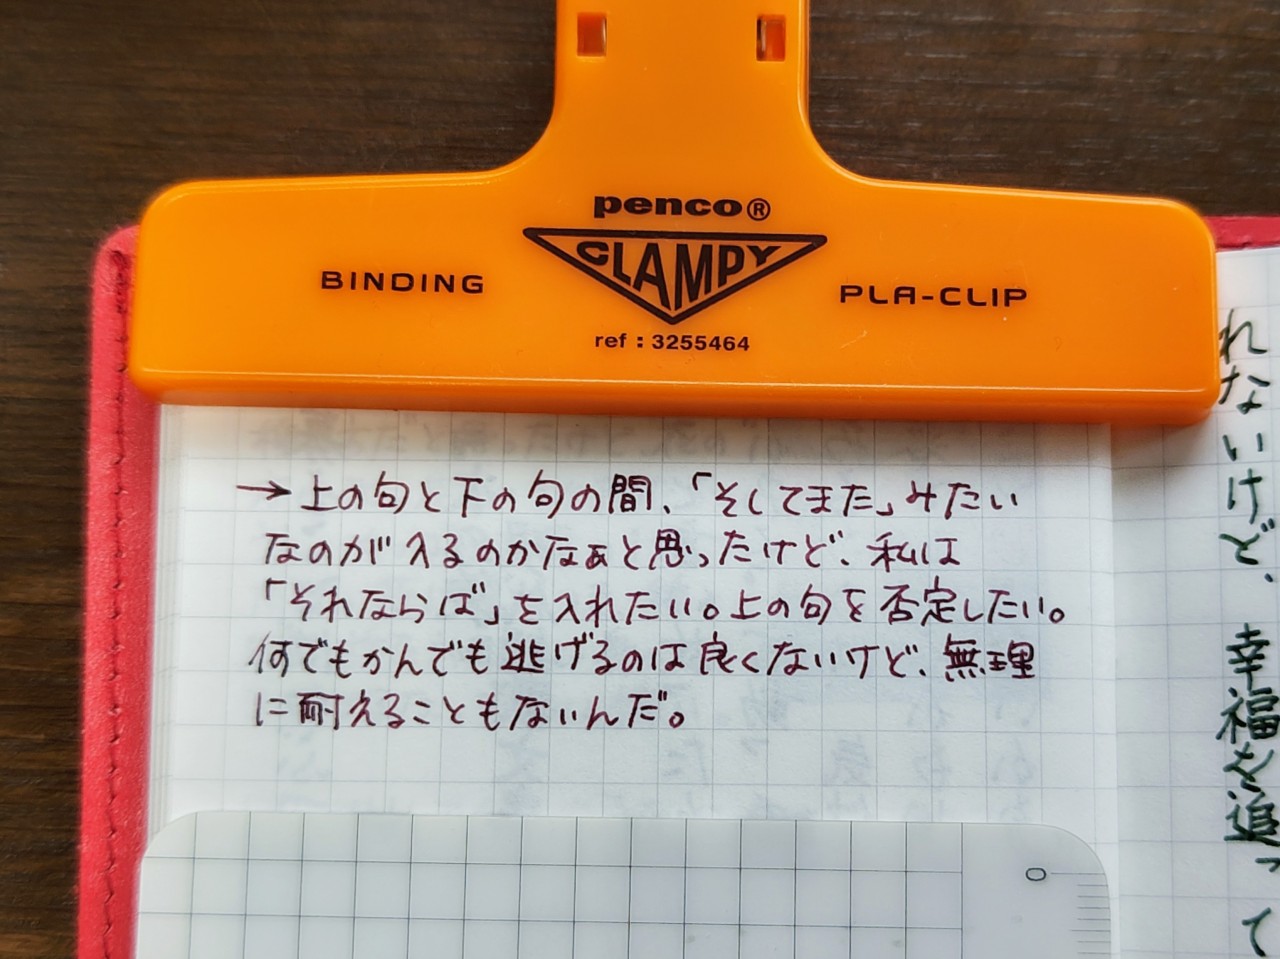 penco®
CLAMPY
BINDING
PLA-CLIP
ref : 3255464
→上の句と下の句の間、「そしてまた」みたい
なのが入るのかなぁと思ったけど、私は
「それならば」を入れたい。上の句を否定したい。
何でもかんでも逃げるのは良くないけど、無理
に耐えることもないんだ。
れないけど、幸福を追って
0